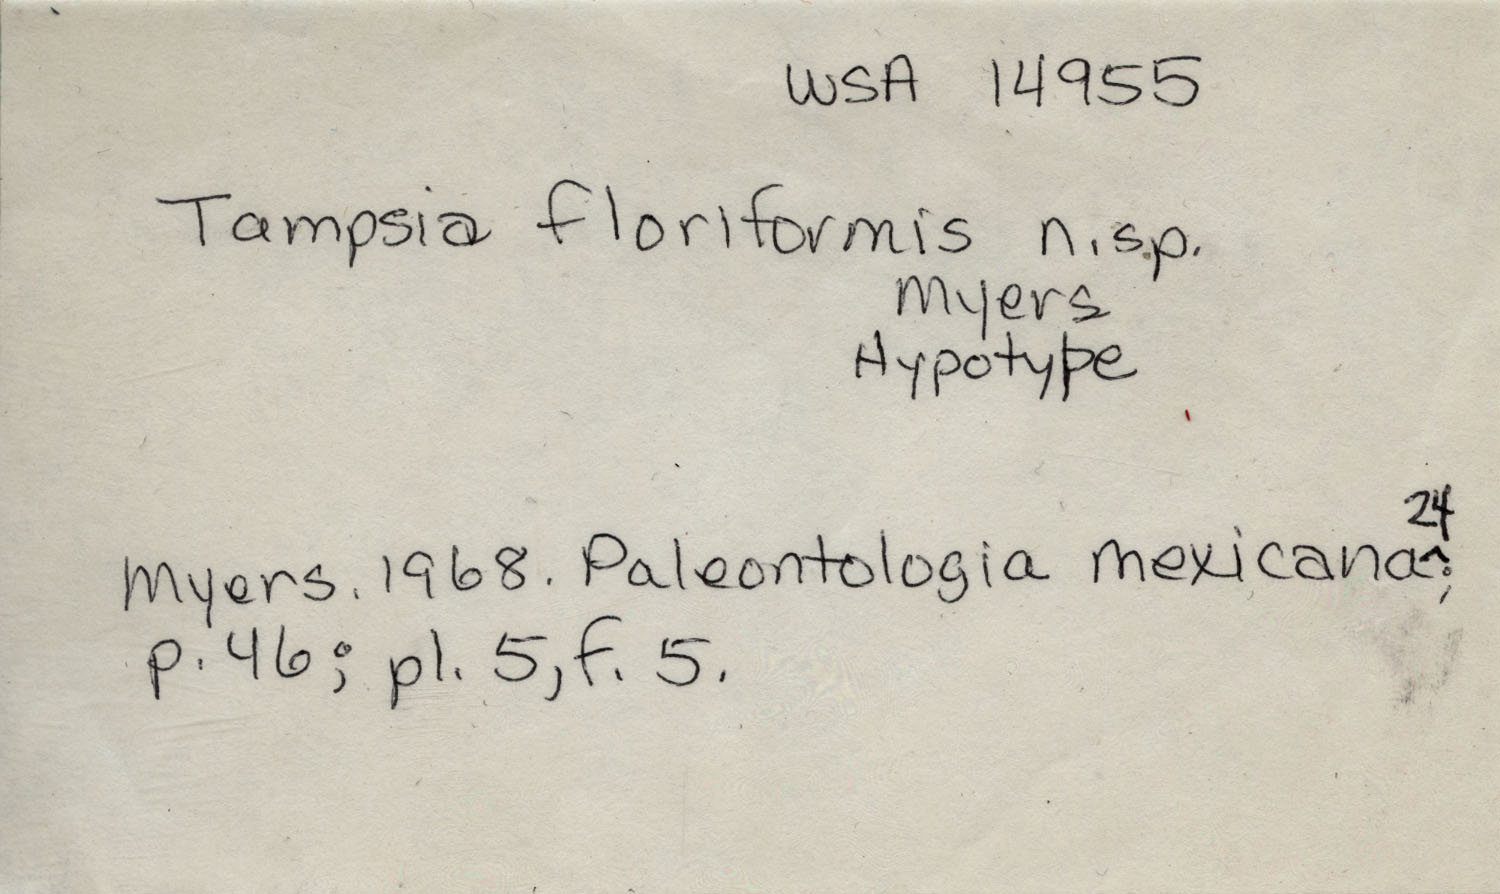 WSA 14955
Tampsia floriformis n.sp.
Myers
Hypotype
Myers. 1968. Paleontologia mexicana^24;
p. 46; pl. 5, f. 5.